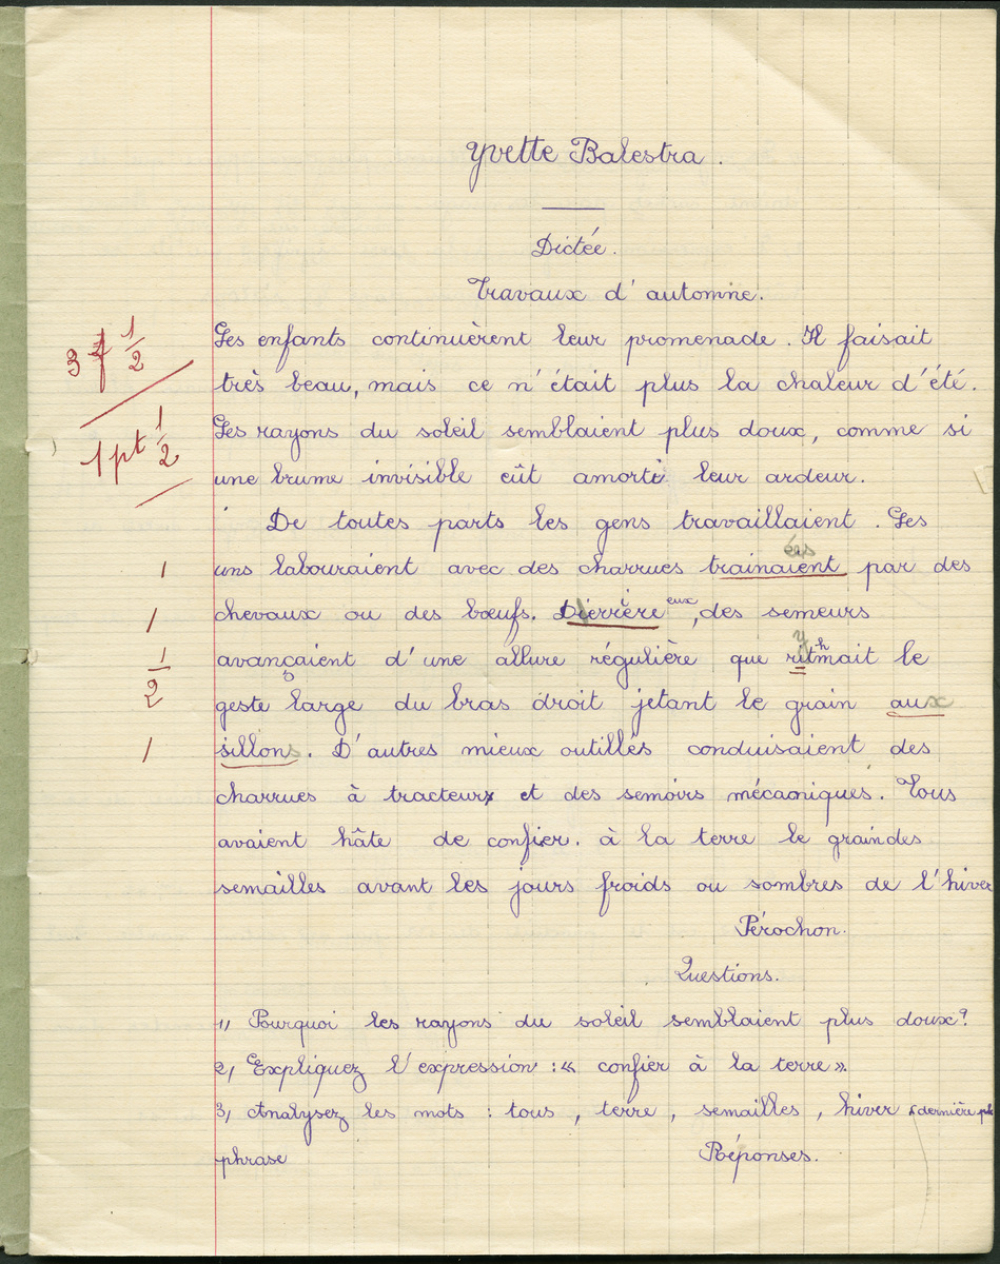 Yvette Balestra.
Dictée.
Travaux d'automne.
3 1/2
Les enfants continuèrent leur promenade. Il faisait
très beau, mais ce n'était plus la chaleur d'été.
1 pt 1/2
Les rayons du soleil semblaient plus doux, comme si
une brume invisible eût amorti leur ardeur.
De toutes parts les gens travaillaient. Les
ées
1 uns labouraient avec des charrues trainaient par des
1 chevaux ou des bœufs. Dierrière eux, des semeurs
y h
1/2 avançaient d'une allure régulière que ritmait le
geste large du bras droit jetant le grain aux
1 sillons. D'autres mieux outillés conduisaient des
charrues à tracteurs et des semoirs mécaniques. Tous
avaient hâte de confier. à la terre le grain des
semailles avant les jours froids ou sombres de l'hiver
Pérochon.
Questions.
1, Pourquoi les rayons du soleil semblaient plus doux?
2, Expliquez l'expression : « confier à la terre ».
3, Analysez les mots : tous, terre, semailles, hiver dernière
phrase Réponses.